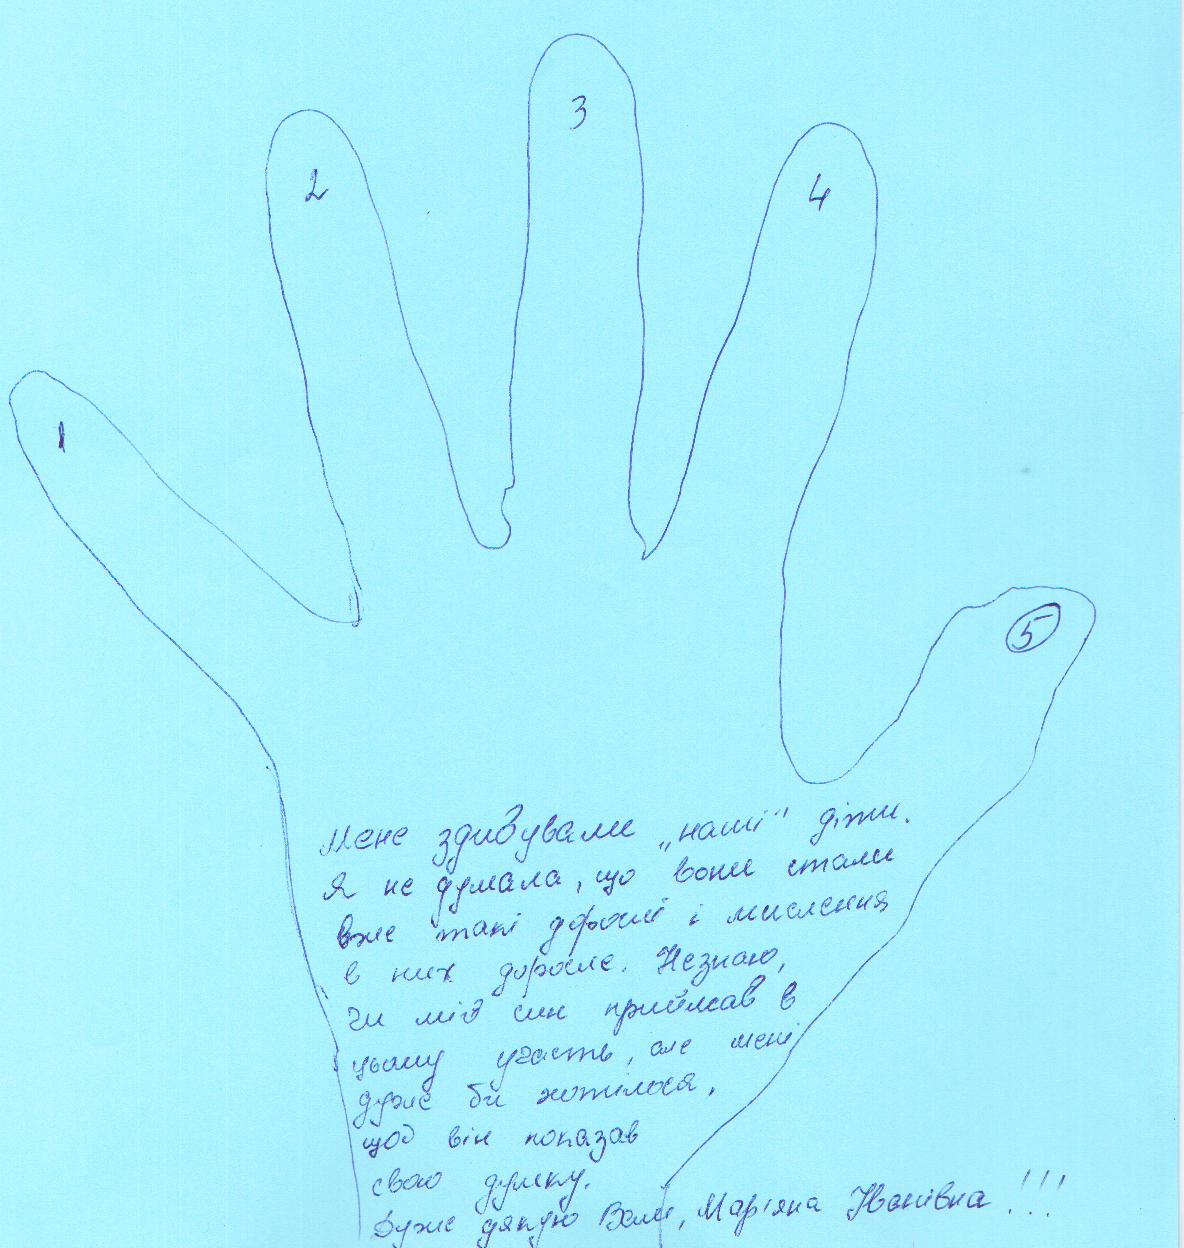 3
2
4
1
5
Мене здивували „наші" діти.
Я не думала, що вони стали
вже такі дорослі і мислення
в них доросле. Незнаю,
чи мій син приймав в
цьому участь, але мені
дуже би хотілося,
щоб він показав
свою думку.
Дуже дякую Вам, Мар'яна Іванівна !!!